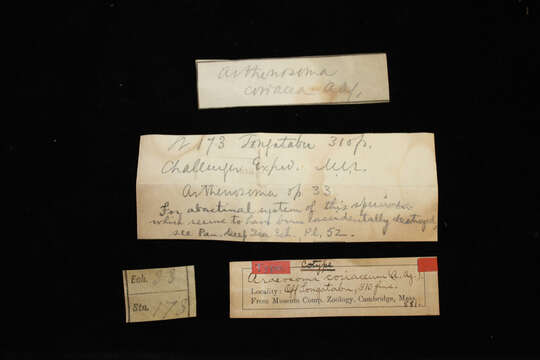 Asthenosoma
coriacea A. Ag.
173 Tongatabu 310 f.
Challenger Exped.
Asthenosoma sp 33
For abactinal system of this specimen
which seems to have been accidentally destroyed
see Pan. Deep Sea Ech., Pl. 52.
Ech. 33
Sta. 173
Cotype
Araeosoma coriaceum A. Ag.
Locality: Off Tongatabu, 310 fms.
From Museum Comp. Zoology, Cambridge, Mass.